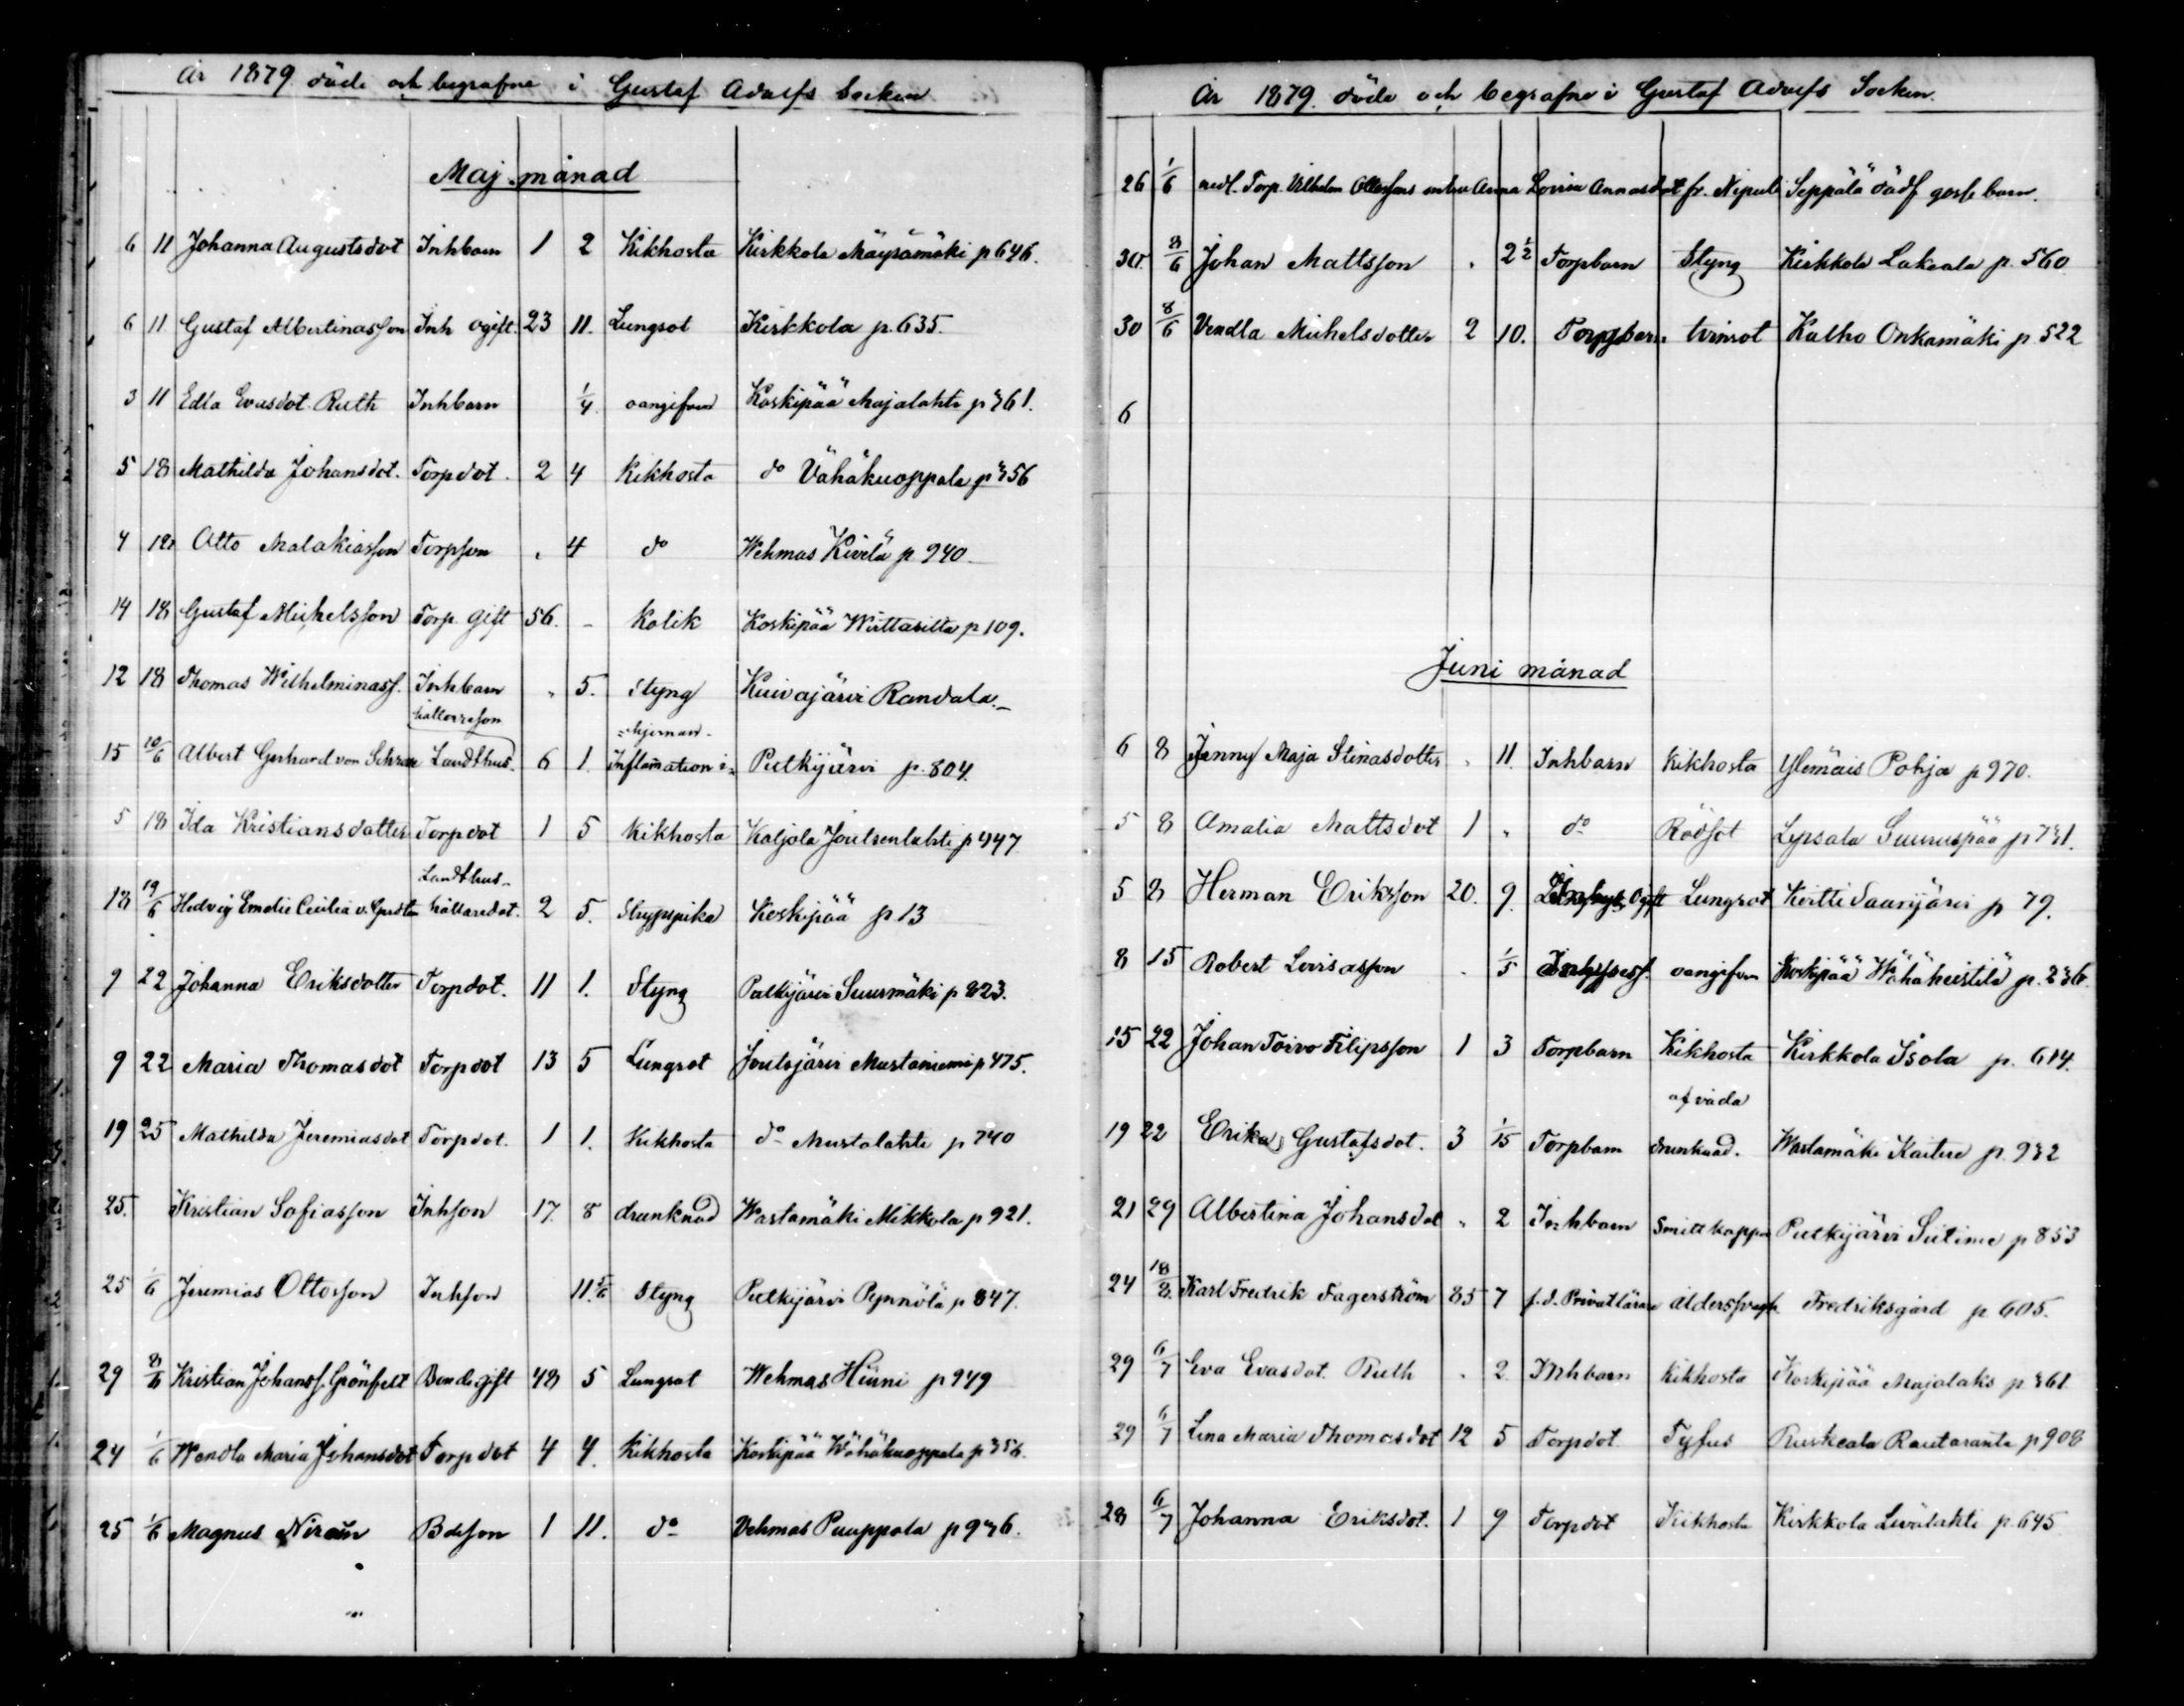 År 1879 döde och begrafne i Gustaf Adolfs Socken
Maj månad
6 11 Johanna Augustsdot Inhbarn 1 2 Kikhosta Kirkkola Mäysämäki p 646.
6 11 Gustaf Albertinasson Inh ogift. 23 11. Lungsot Kirkkola p. 635.
3 11 Edla Evasdot Ruth Inhbarn 1/4 oangifven Koskipää Majalahti p 361.
5 18 Mathilda Johansdot. Torpdot. 2 4 Kikhosta do Vähäkuoppala p 356
4 18 Otto Malakiasson Torpson " 4 do Wehmas Kivelä p 940
14 18 Gustaf Michelsson Torp. gift 56. - Kolik Koskipää Wiittasilta p 109.
12 18 Thomas Wilhelminass. Inhbarn " 5. Styng Kuivajärvi Randala.
hållaresson =hjernan-
15 10/6 Albert Gerhard von Landthus. 6 1. Inflamation i= Putkijärvi p. 804.
5 18 Ida Kristiansdotter Torpdot 1 5 Kikhosta Kaljola p 447
Landthus-
18 19/6 Hedvig Emelie Cecilia v. hållaredot. 2 5. Strypsjuka Koskipää p 13
9 22 Johanna Eriksdotter Torpdot. 11 1. Styng Putkijärvi Suurmäki p 823.
9 22 Maria Thomasdot Torpdot 13 5 Lungsot Joutsjärvi Mustaniemi p 475.
19 25 Mathilda Jeremiasdot Torpdot. 1 1. Kikhosta do Mustalahti p 740
25. Kristian Sofiasson Inhson 17. 8 drunknad Wastamäki Mikkola p 921.
25 1/6 Jeremias Ottosson Inhson 11. 5/6 Styng Putkijärvi Pynnölä p 847.
29 8/6 Kristian Johanss. Grönfelt Bonde gift 48 5 Lungsot Wehmas Hinni p 949
24 1/6 Wendla Maria Johansdot Torpdot 4 4. Kikhosta Koskipää Wähäkuoppala p 356.
25 1/6 Magnus Bdeson 1 11. do Vehmas Puuppola p 936.
År 1879. döde och begrafne i Gustaf Adolfs Socken.
26 1/6 Torp. Vilhelm Ottossons hustru Anna Lovisa Annasdot fr. Nipuli Seppälä dödf gosse barn.
30. 8/6 Johan Mattsson " 2 1/2 Torpbarn Styng Kirkkola Lakeala p. 560
30 8/6 Vendla Michelsdotter 2 10. Torpbarn tvinsot Kalho Onkamäki p 522
6
Juni månad
6 8 Jenny Maja Stinasdotter " 11. Inhbarn Kikhosta Ylemäis Pohja p 970.
5 8 Amalia Mattsdot 1 " do Rödsot Lepsala Suuruspää p 731.
5 8 Herman Eriksson 20. 9. Ogift Lungsot Kertti Saarijärvi p 79.
8 15 Robert Lovisasson " 1/5 oangifven Koskipää Wähäheistilä p. 236.
15 22 Johan Toivo Filipsson 1 3 Torpbarn Kikhosta Kirkkola Isola p. 614.
af våda
19 22 Erika Gustafsdot. 3 1/15 Torpbarn drunknad. Wastamäki Kaitere p. 932
21 29 Albertina Johansdot " 2 Inhbarn Smittkoppor Putkijärvi Siitime p 853
24 18/8. Karl Fredrik Fagerström 85 7 f.d. Privatlärare ålderssvagh. Fredriksgård p 605.
29 6/7 Eva Evasdot. Ruth " 2 Inhbarn Kikhosta Koskipää Majalaks p. 361.
29 6/7 Lena Maria Thomasdot 12 5 Torpdot. Tyfus Ruskeala Rautaranta p 908
28 6/7 Johanna Eriksdot. 1 9 Torpdot Kikhosta Kirkkola p. 645